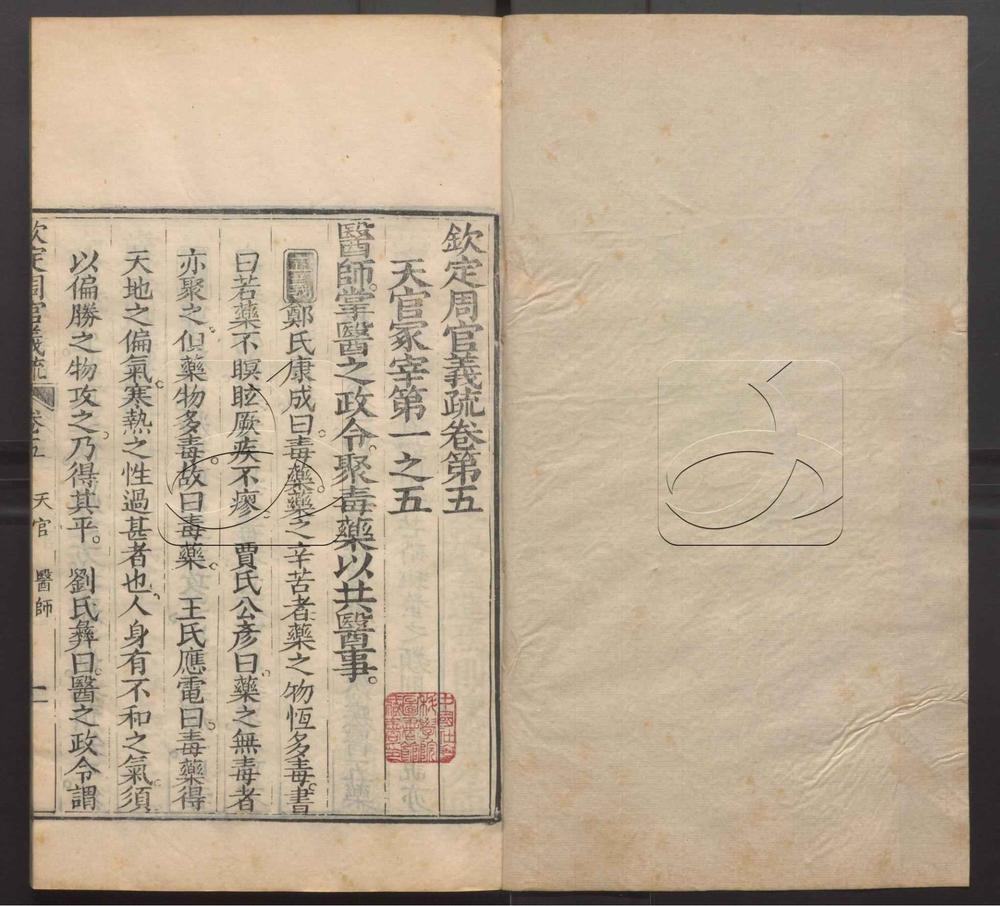 欽定周官義疏卷第五
天官冢宰第一之五
醫師。掌醫之政令。聚毒藥以共醫事。
正義鄭氏康成曰。毒藥。藥之辛苦者。藥之物恆多毒。書
曰若藥不瞑眩厥疾不瘳。 賈氏公彥曰。藥之無毒者
亦聚之。但藥物多毒。故曰毒藥。 王氏應電曰。毒藥得
天地之偏氣。寒熱之性過甚者也。人身有不和之氣。須
以偏勝之物攻之。乃得其平。 劉氏彝曰。醫之政令。謂
欽定周官義疏 卷五 天官 醫師 一